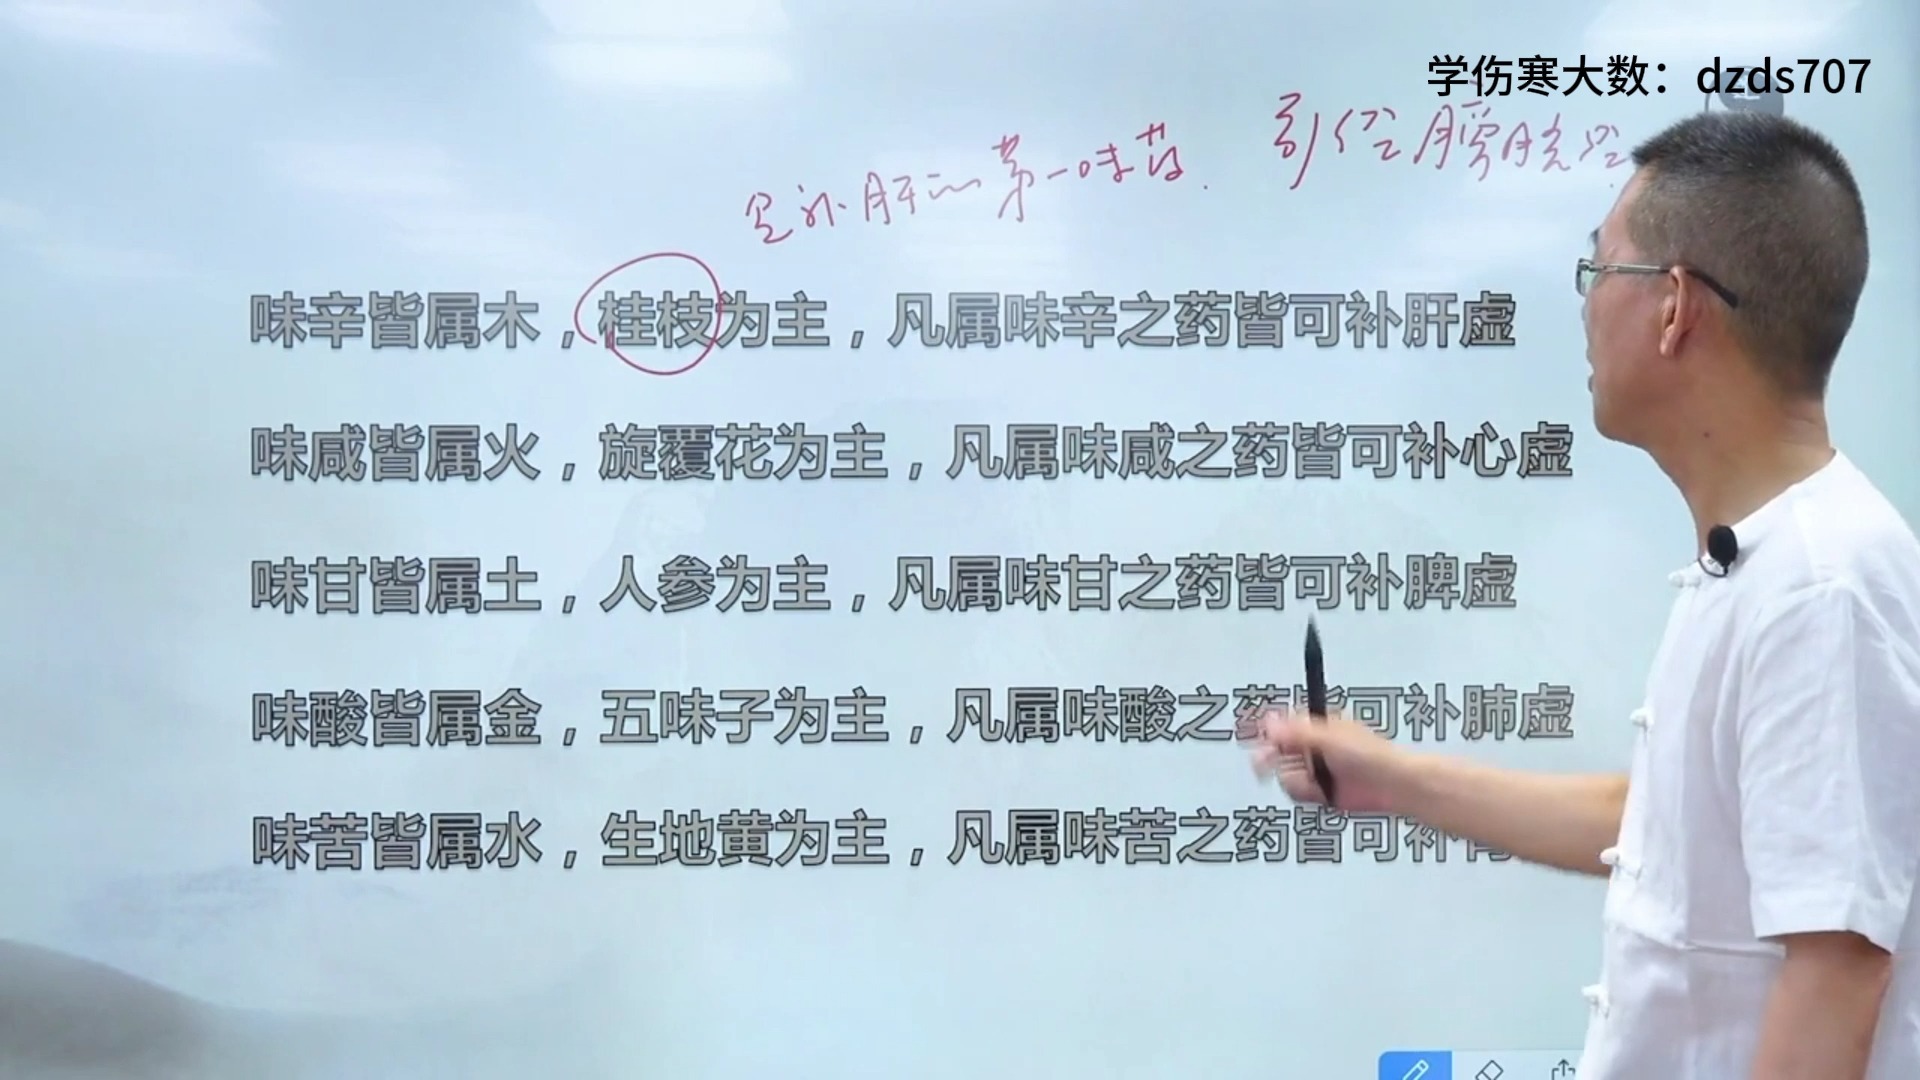 学伤寒大数：dzds707
是补肝的第一味药. 引经膀胱经
味辛皆属木，桂枝为主，凡属味辛之药皆可补肝虚
味咸皆属火，旋覆花为主，凡属味咸之药皆可补心虚
味甘皆属土，人参为主，凡属味甘之药皆可补脾虚
味酸皆属金，五味子为主，凡属味酸之药皆可补肺虚
味苦皆属水，生地黄为主，凡属味苦之药皆可补